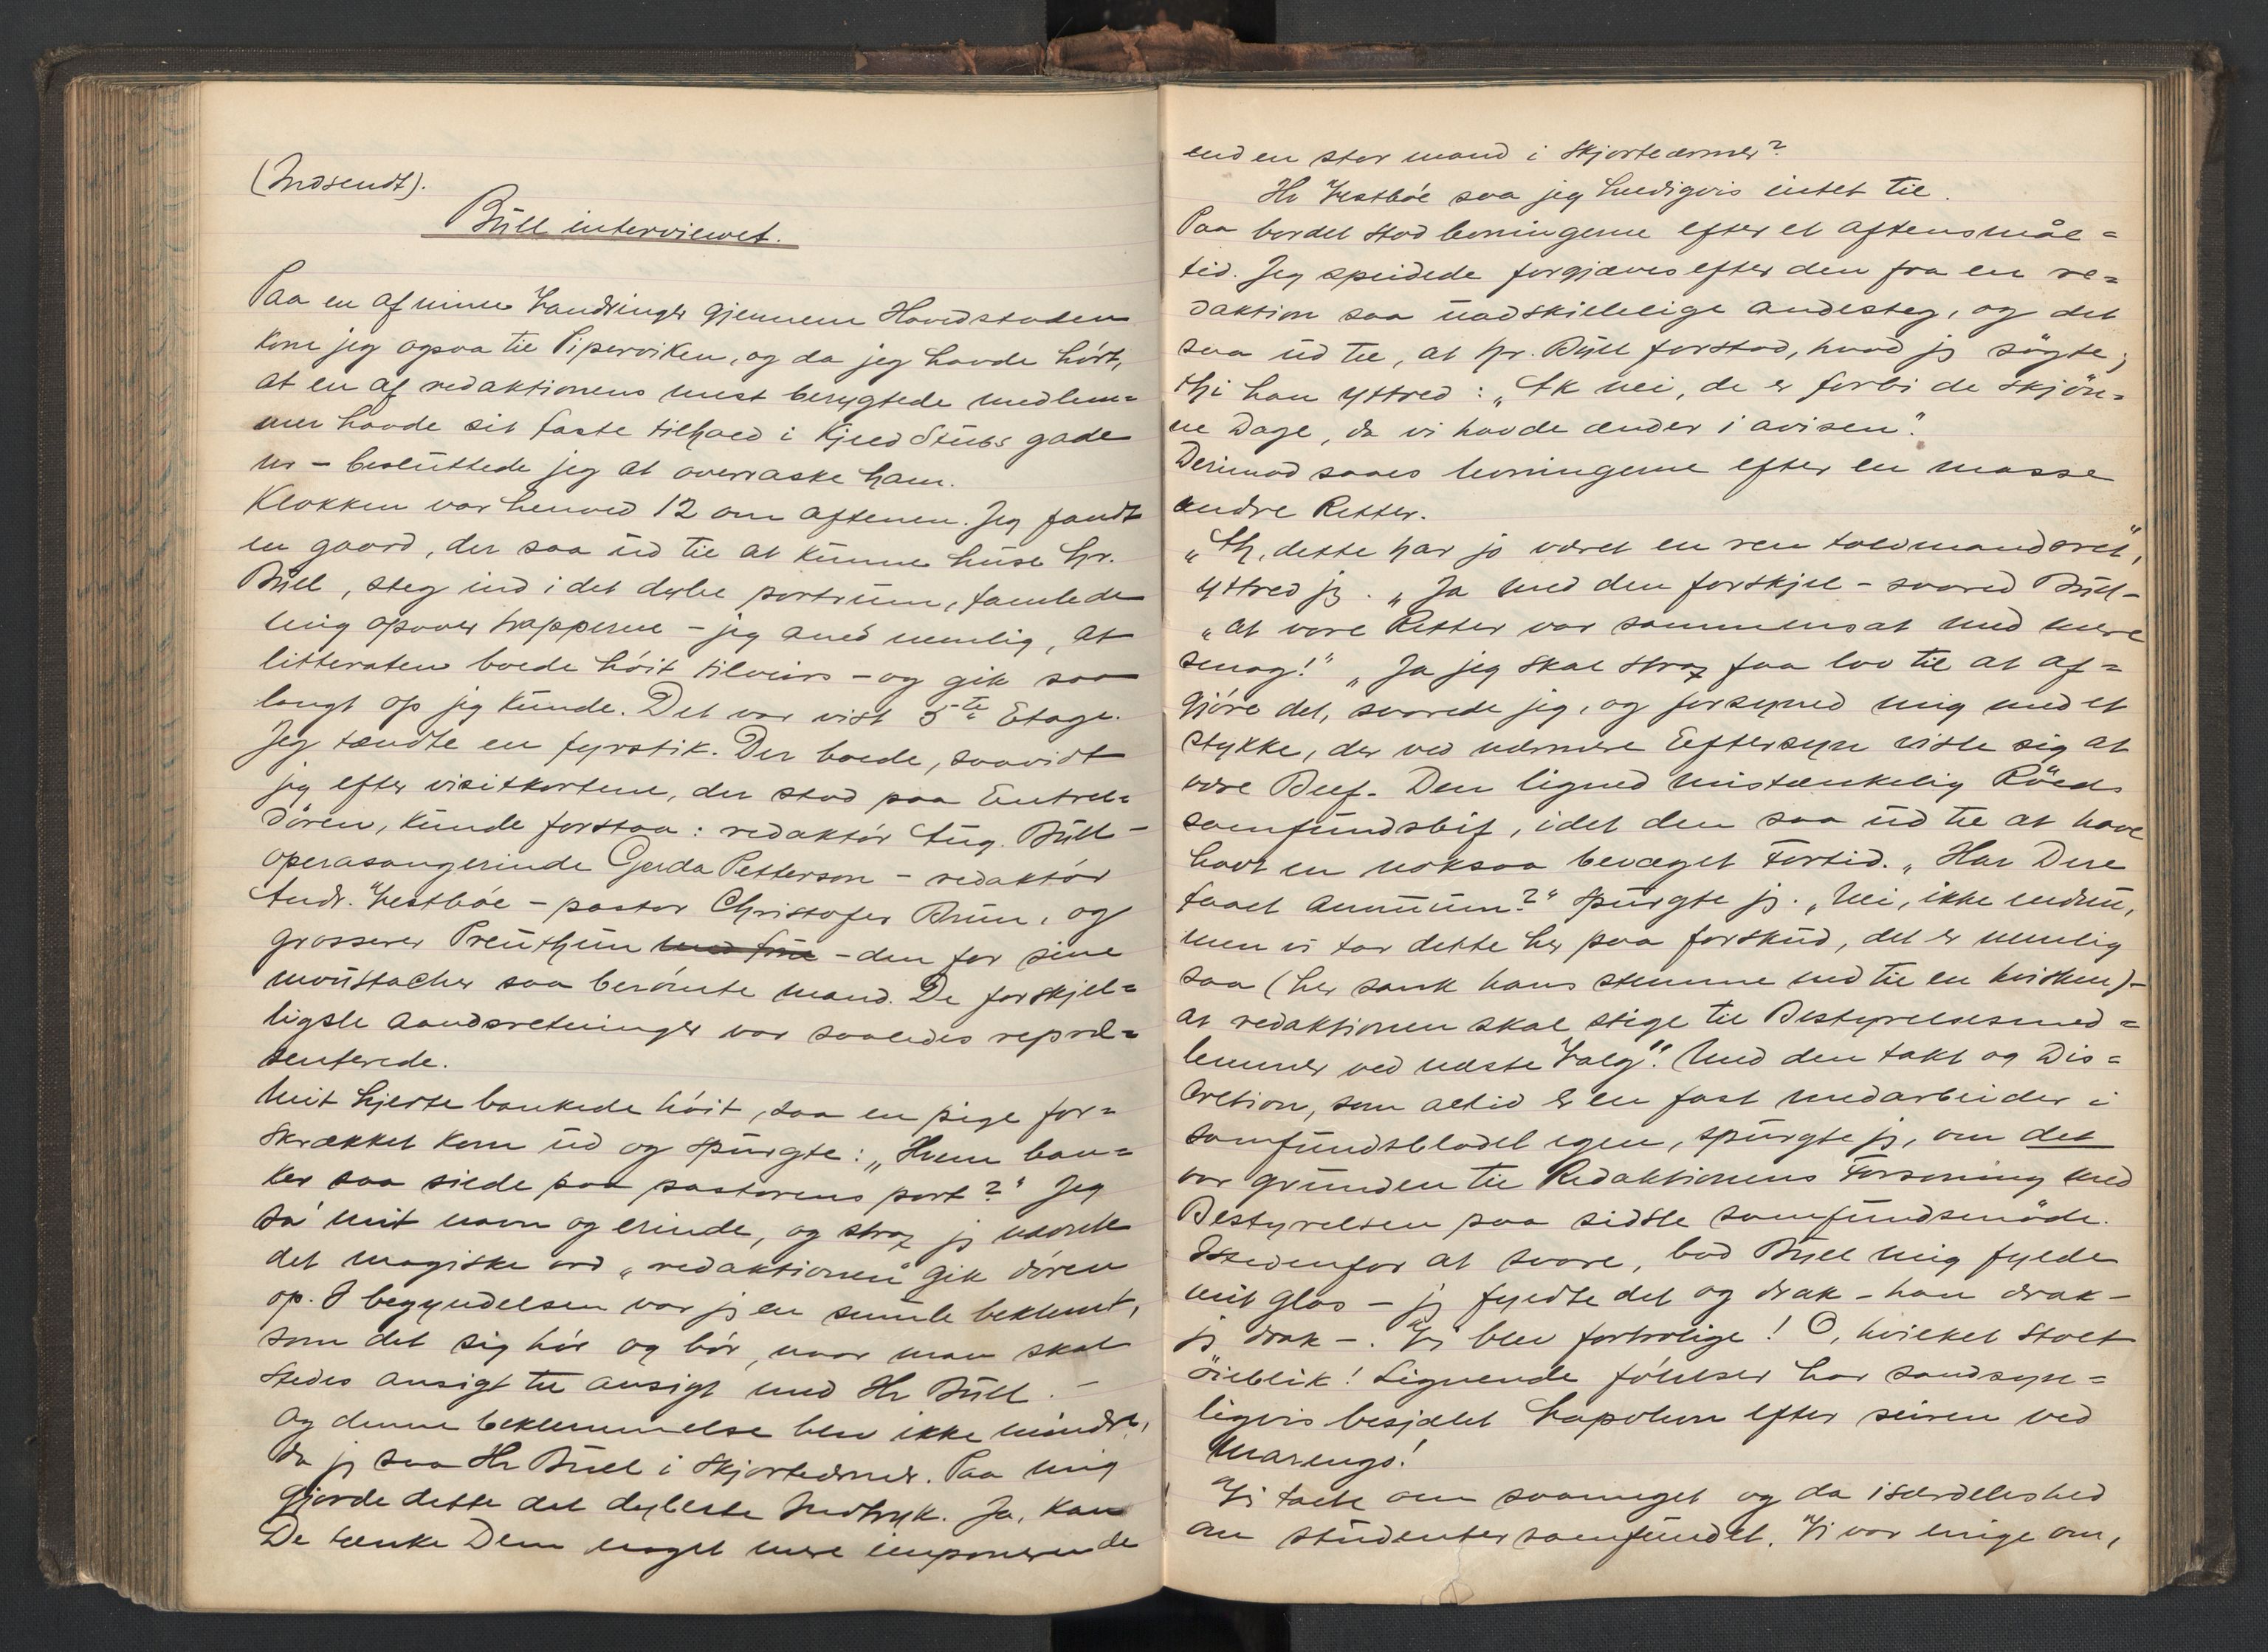 (Indsendt).
Büll interviewet.
Paa en af mine Vandringer gjennem Hovedstaden
kom jeg ogsaa til Piperviken, og da jeg havde hört,
at en af redaktionens mest berygtede medlem=
mer havde sit faste tilhold i Kjeld Stübs gade
nr – beslüttede jeg at overraske ham.
Klokken var henved 12 om aftenen. Jeg fandt
en gaard, der saa üd til at künne hüse hr.
Büll, steg ind i det dybe portrüm, famlede
mig opover trapperne – jeg aned nemlig, at
litteraten boede höit tilveirs – og gik saa
langt op jeg künde. Det var vist 5te Etage.
Jeg tændte en fyrstik. Der boede, saavidt
jeg efter visitkortene, der stod paa Entree=
dören, künde forstaa: redaktör Aug. Büll –
operasangerinde Gerda Petterson – redaktör
Andr. Vestböe – pastor Christofer Brün, og
grosserer Preüthün – den for sine
moüstacher saa berömte mand. De forskjel=
ligste aandsretninger var saaledes repræ=
senterede.
Mit hjerte bankede höit, saa en pige for=
skrækket kom üd og spürgte: „Hvem ban=
ker saa silde paa pastorens port?" Jeg
sa' mit navn og erinde, og strax jg nævnte
det magiske ord „redaktionen" gik dören
op. I begyndelsen var jg en smule beklemt,
som det sig hör og bör, naar man skal
stedes ansigt til ansigt med Hr Büll. –
Og denne beklemmelse blev ikke mindre,
da jg saa Hr Büll i Skjorteærmer. Paa mig
gjorde dette det dybeste Indtryk. Ja, kan
De tænke Dem noget mere imponerende
end en stor mand i Skjorteærmer?
Hr Vestböe saa jeg heldigvis intet til.
Paa bordet stod levningerne efter et aftensmål=
tid. Jeg speidede forgjæves efter den fra en re=
daktion saa üadskillelige andesteg, og det
saa üd til, at hr. Büll forstod, hvad jg sögte;
thi han yttred: „Ak nei, de er forbi de skjön=
ne Dage, da vi havde ænder i avisen".
Derimod saaes levningerne efter en masse
andre Retter.
„Ah, dette har jo været en ren toldmandsret",
yttred jg. „Ja med den forskjel – svared Büll –
„at vore Retter var sammensat med mere
smag!" „Ja jeg skal strax faa lov til at af=
gjöre det, svarede jeg, og forsyned mig med et
stykke, der ved nærmere Eeftersyn viste sig at
være Beef. Den ligned mistænkelig Röeds
samfündsbif, idet den saa üd til at have
havt en noksaa bevæget Fortid. „Har Dere
faaet Annüüm?" Spürgte jg. „Nei, ikke endnü,
men vi tar dette her paa forsküd, det er nemlig
saa (her sank hans stemme ned til en hvisken) –
at redaktionen skal stige til Bestyrelsesmed=
lemmer ved næste Valg". Med den takt og Dis=
cretion, som altid er en fast medarbeider i
samfündsbladet egen, spürgte jg, om det
var gründen til Redaktionens Forsoning med
Bestyrelsen paa sidste samfündsmöde.
Istedenfor at svare, bad Büll mig fylde
mit glas – jg fyldte det og drak – han drak –
jg drak –. Vi blev fortrolige! O, hvilket stolt
öieblik! Lignende fölelser har sandsyn=
ligvis besjælet Napoleon efter seiren ved
Marengo!
Vi talte om saameget og da isærdeleshed
om stüdentersamfündet. Vi var enige om,